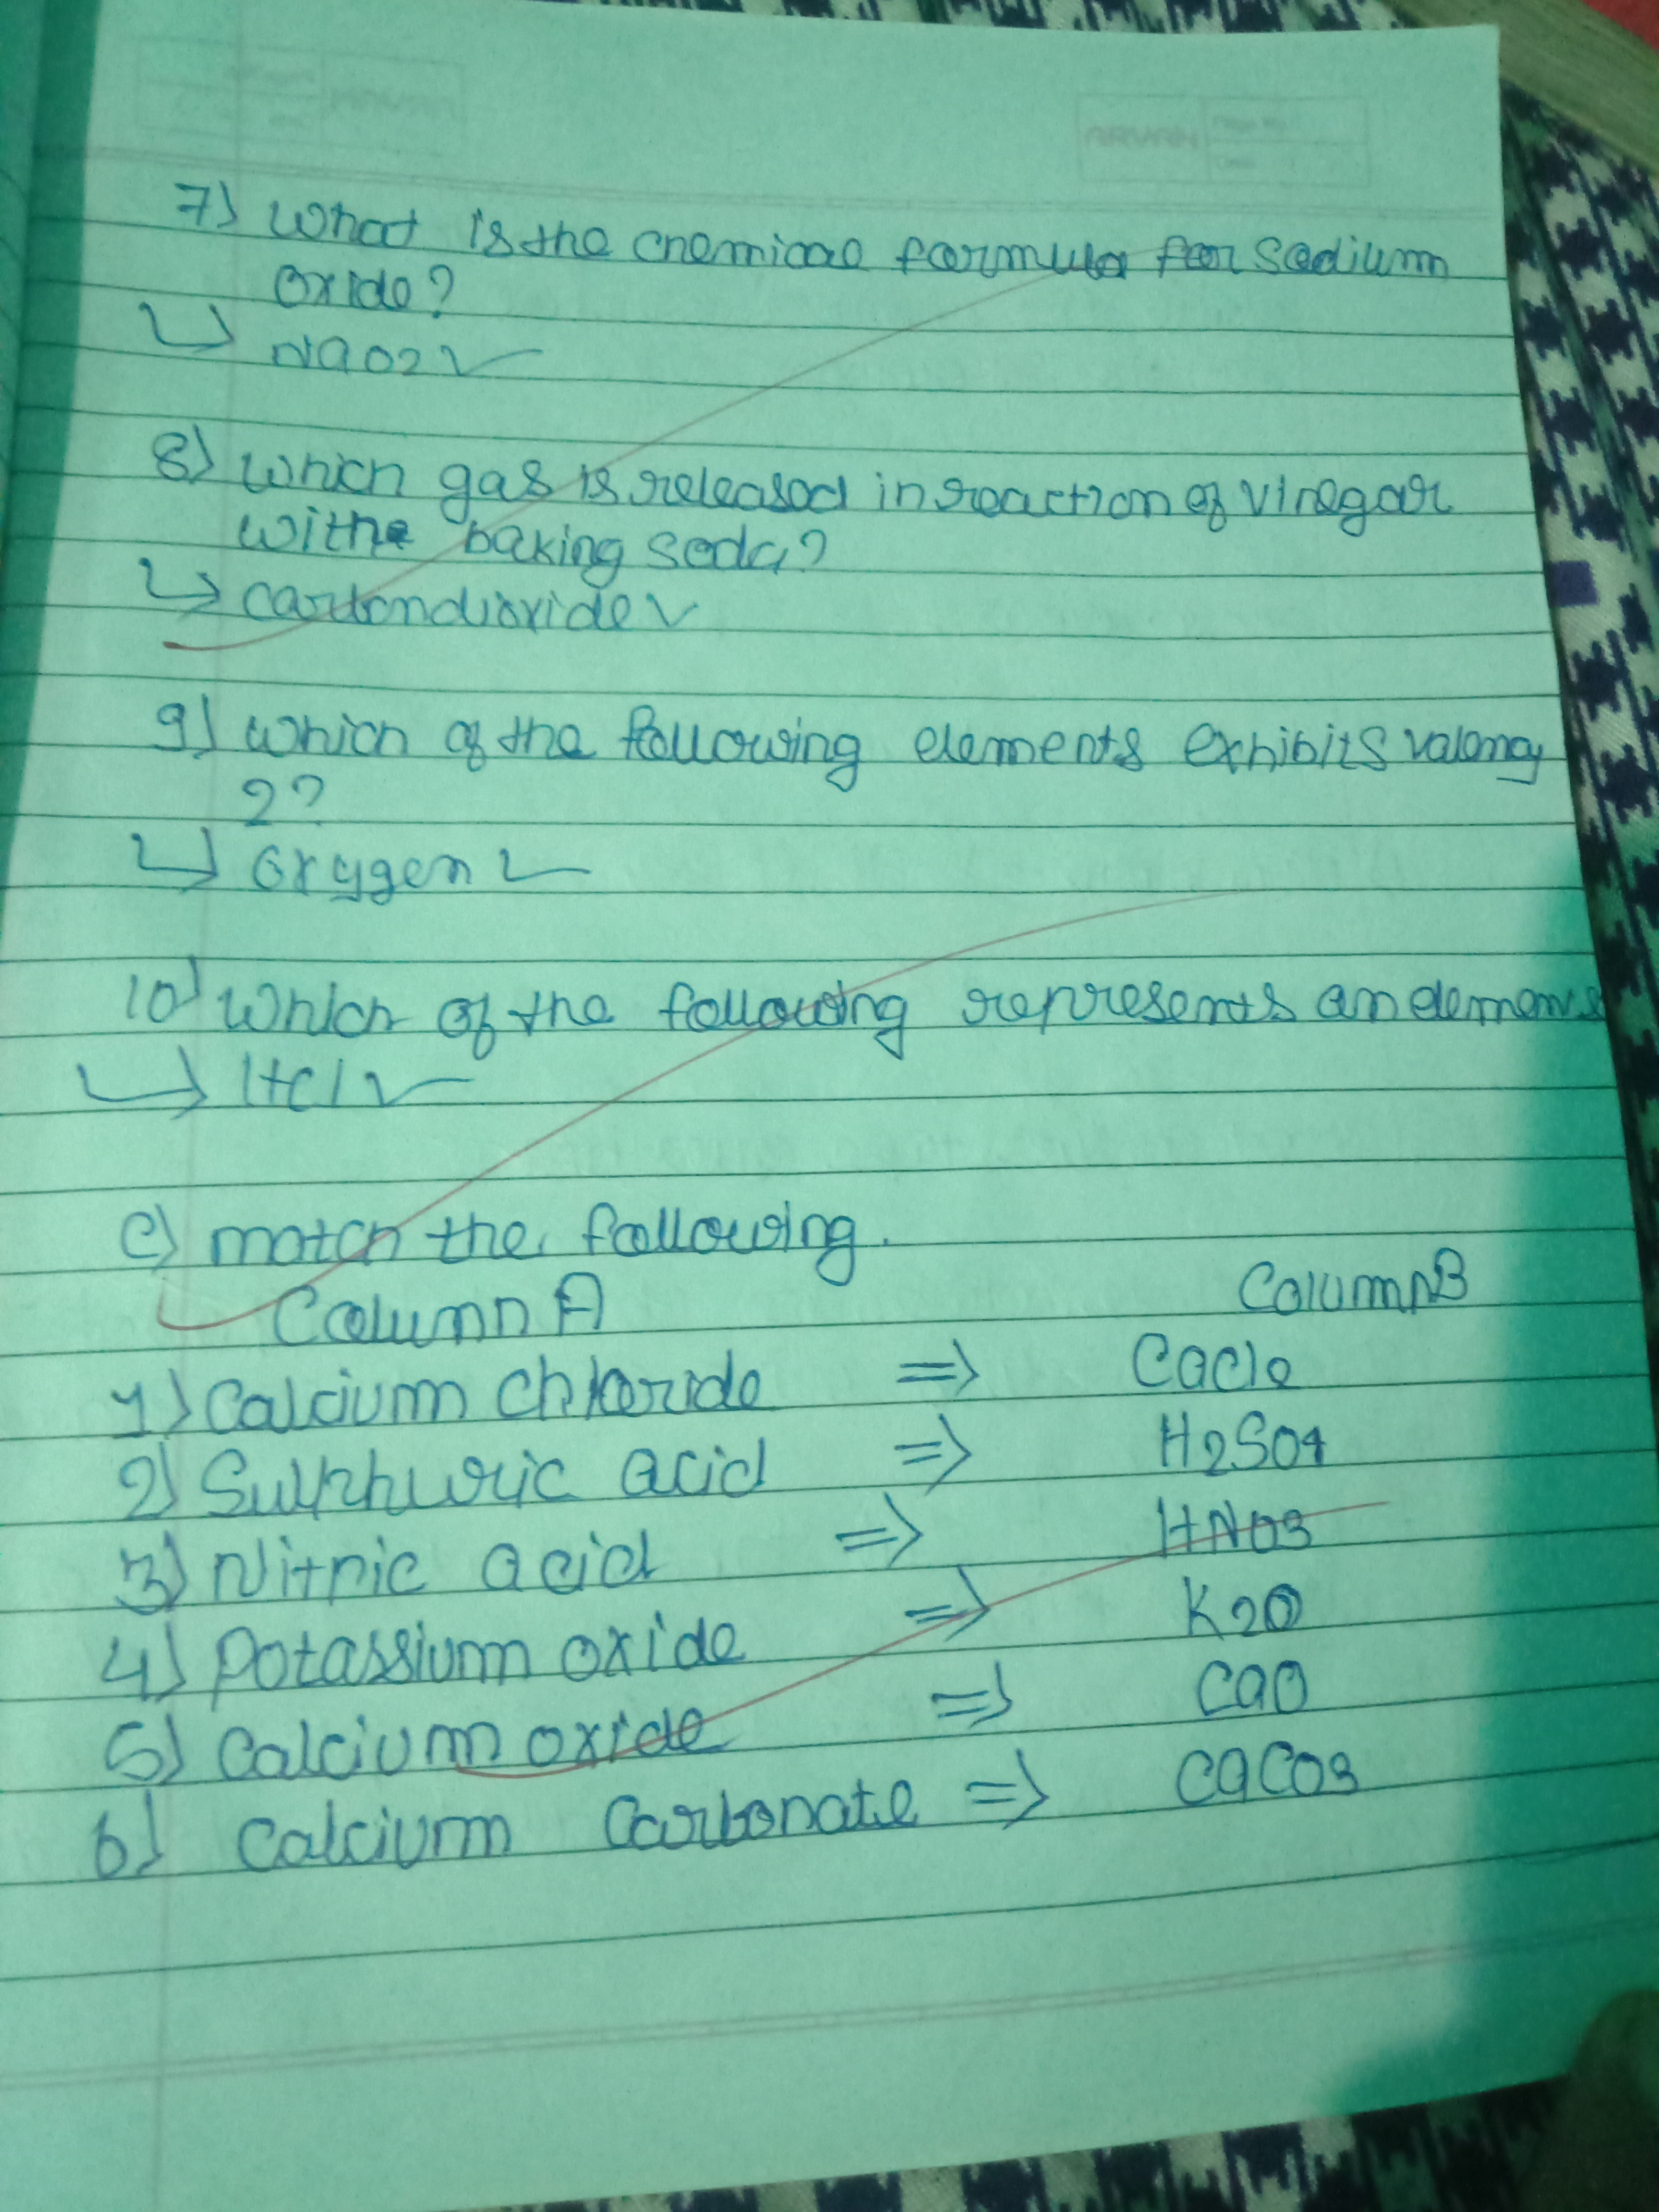 ARVAN
7) What is the chemical formula for sodium
oxide?
NaO2
8) Which gas is released in reaction of vinegar
with baking soda?
carbondioxide
9) Which of the following elements exhibits valency
2?
oxygen
10) Which of the following represents an element
HCl
C) match the following.
Column A Column B
1) Calcium Chloride => CaCl2
2) Sulphuric acid => H2SO4
3) Nitric acid => HNO3
4) Potassium oxide => K2O
5) Calcium oxide => CaO
6) Calcium Carbonate => CaCO3